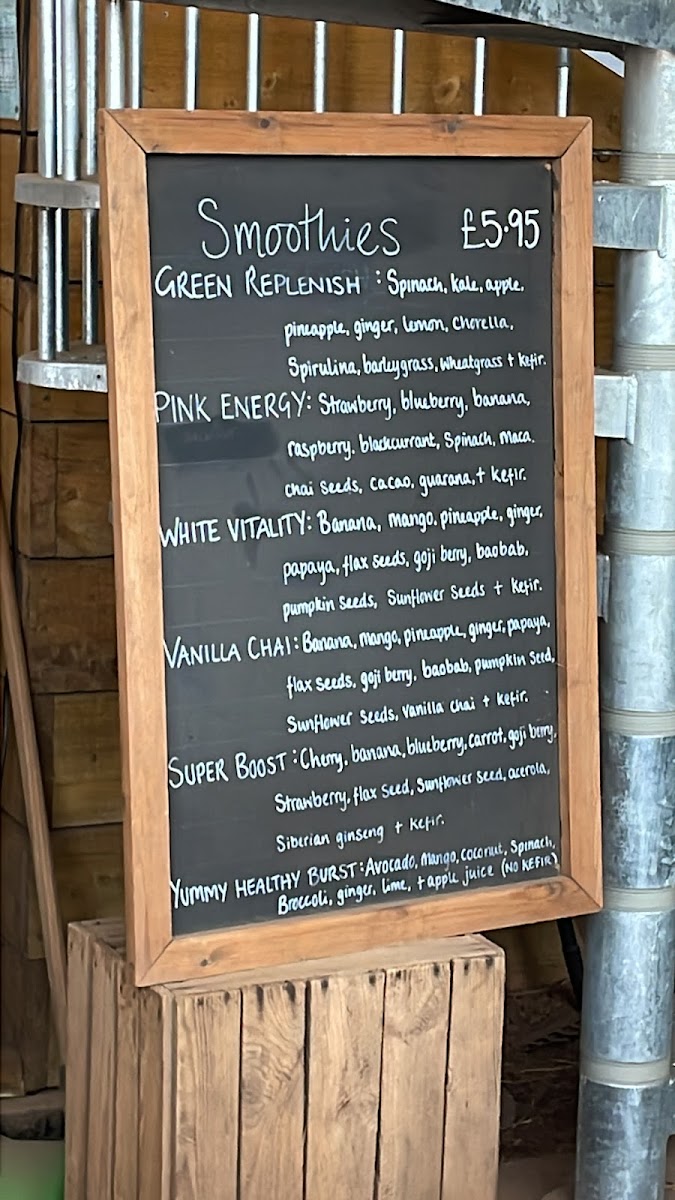 Smoothies £5.95
GREEN REPLENISH : Spinach, kale, apple,
pineapple, ginger, lemon, Chorella,
Spirulina, barleygrass, wheatgrass + kefir.
PINK ENERGY: Strawberry, blueberry, banana,
raspberry, blackcurrant, Spinach, maca.
chai seeds, cacao, guarana, + kefir.
WHITE VITALITY: Banana, mango, pineapple, ginger,
papaya, flax seeds, goji berry, baobab,
pumpkin seeds, Sunflower Seeds + kefir.
VANILLA CHAI: Banana, mango, pineapple, ginger, papaya,
flax seeds, goji berry, baobab, pumpkin seed,
Sunflower Seeds, vanilla chai + kefir.
SUPER BOOST : Cherry, banana, blueberry, carrot, goji berry,
Strawberry, flax seed, Sunflower seed, acerola,
Siberian ginseng + kefir.
YUMMY HEALTHY BURST: Avocado, mango, coconut, Spinach,
Broccoli, ginger, lime, + apple juice (NO KEFIR)